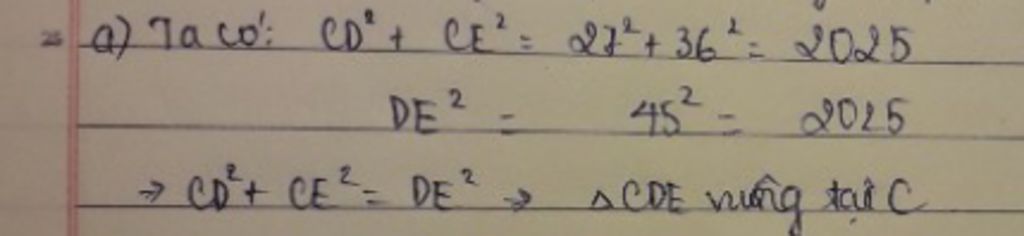 a) Ta có: CD² + CE² = 27² + 36² = 2025
DE² = 45² = 2025
→ CD² + CE² = DE² → △CDE vuông tại C